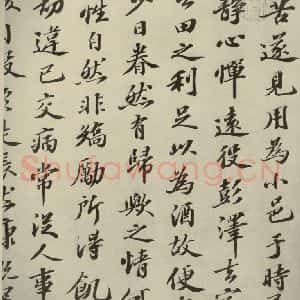 苦遂見用為小邑于時
靜心憚遠役彭澤去家
公田之利足以為酒故便
少日眷然有歸歟之情何
性自然非矯勵所得飢
切違已交病常從人事
Shufawang.CN